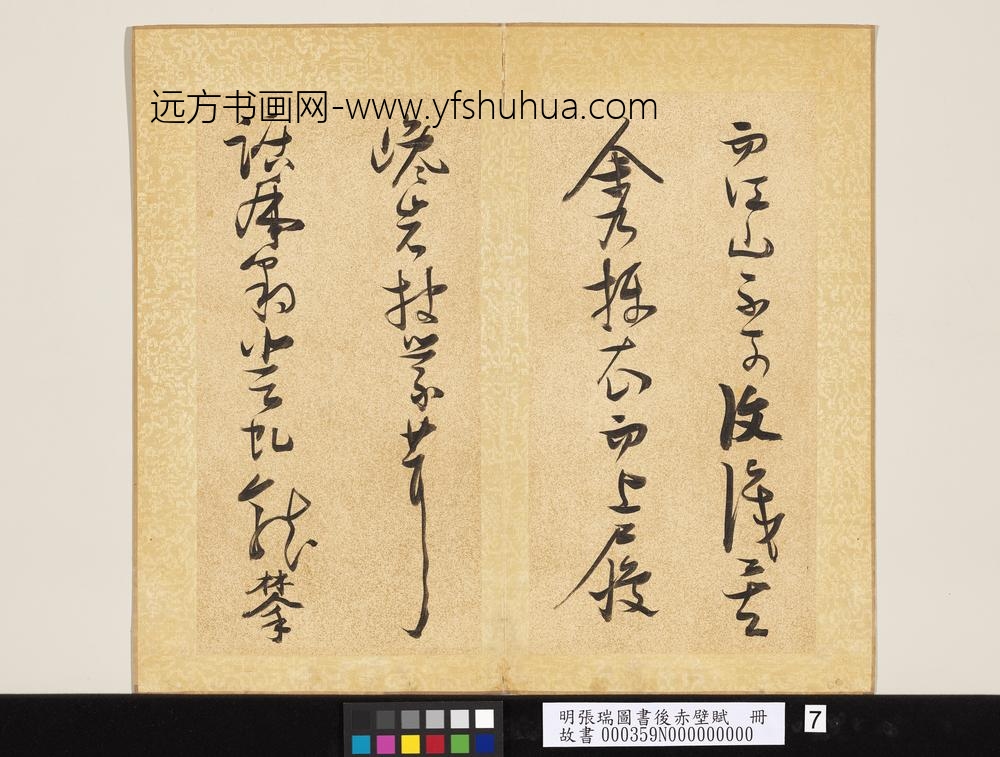 远方书画网-www.yfshuhua.com
而江山不可復識矣
余乃攝衣而上履
巉岩披蒙茸
踞虎豹登虬龍攀
明張瑞圖書後赤壁賦 冊
故書000359N000000000
7